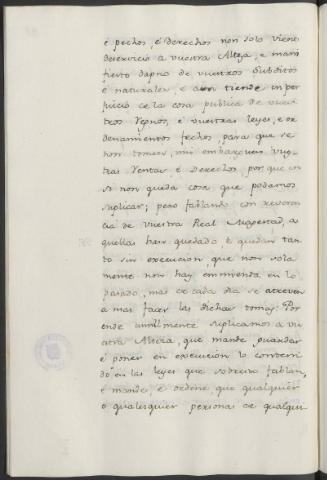 é pechos, é Derechos non solo viene
deservicio a vuestra Alteza, e mani
fiesto dapno de vuestros Subditos
é naturales, e aun tiende in per
juicio de la cosa publica de vues
tros Regnos, é vuestras leyes, e or
denamientos fechos, para que se
non tomen, nin embarguen vues
tras Rentas é Derechos, por que en
si non queda cosa que podamos
suplicar; pero fablando con reveren
cia de vuestra Real Magestad, a
quellas han quedado, é quedan tan
to sin execucion, que non sola
mente non hay enmienda en lo
pasado, mas de cada dia se atreven
a mas facer las dichas tomas: Por
ende umilmente suplicamos a vu
estra Alteza, que mande guardar
é poner en execucion lo conteni
do en las leyes que sobresto fablan,
é mande, é ordene, que qualquier
o qualesquier personas de qualqui